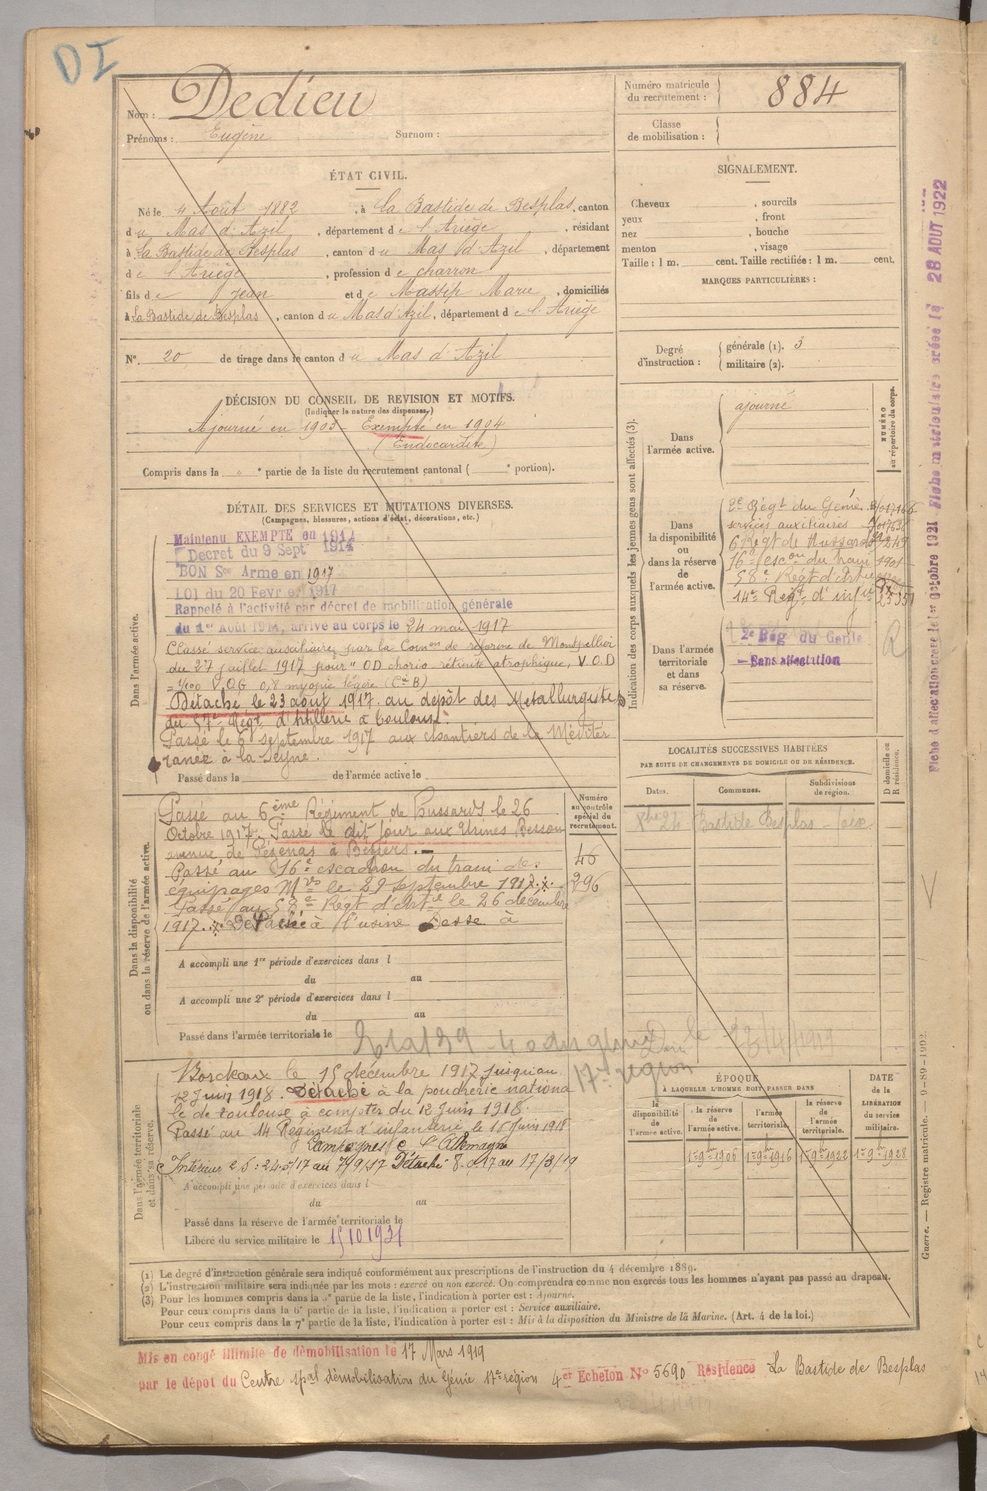 DI
Nom : Dedieu
Prénoms : Eugène Surnom :
Numéro matricule du recrutement : 884
Classe de mobilisation :
ÉTAT CIVIL.
Né le 4 Août 1882, à la Bastide de Besplas, canton
du Mas d'Azil, département de l'Ariège, résidant
à la Bastide de Besplas, canton du Mas d'Azil, département
de l'Ariège, profession de charron
fils de Jean et de Massip Marie, domiciliés
à La Bastide de Besplas, canton du Mas d'Azil, département de l'Ariège
N° 20 de tirage dans le canton du Mas d'Azil
SIGNALEMENT.
Cheveux , sourcils
yeux , front
nez , bouche
menton , visage
Taille : 1 m. cent. Taille rectifiée : 1 m. cent.
MARQUES PARTICULIÈRES :
Degré d'instruction : générale (1). 3
militaire (2).
DÉCISION DU CONSEIL DE REVISION ET MOTIFS.
(Indiquer la nature des dispenses.)
Ajourné en 1903 - Exempté en 1904
(Endocardite)
Compris dans la " ° partie de la liste du recrutement cantonal ( ° portion).
DÉTAIL DES SERVICES ET MUTATIONS DIVERSES.
(Campagnes, blessures, actions d'éclat, décorations, etc.)
Dans l'armée active.
Maintenu EXEMPTE en 1914
Decret du 9 Sept 1914
BON Sce Armé en 1917
LOI du 20 Fevrier 1917
Rappelé à l'activité par décret de mobilisation générale
du 1er Août 1914, arrivé au corps le 24 mai 1917
Classé service auxiliaire par la Comon de réforme de Montpellier
du 27 juillet 1917 pour "OD chorio rétinite atrophique, V.O.D
V.OG 0,8 myopie légère (Cne B)
Détaché le 23 août 1917 au dépôt des Metallurgistes
du 57e Régt d'Artillerie à Toulouse
Passé le 6 septembre 1917 aux chantiers de la Méditer
ranée à la Seyne.
Passé dans la de l'armée active le
Dans la disponibilité ou dans la réserve de l'armée active.
Numéro au contrôle spécial du recrutement.
Passé au 6ème Régiment de Hussards le 26
Octobre 1917. Passé le dit jour aux Usines Besson
avenue de Pézenas à Béziers.
46
Passé au 16e escadron du train des
équipages Mres le 29 septembre 1917.
296
Passé au 57e Régt d'artie le 26 décembre
1917. Détaché à l'usine Besse à
A accompli une 1re période d'exercices dans l
du au
A accompli une 2e période d'exercices dans l
du au
Passé dans l'armée territoriale le
17e région
Dans l'armée territoriale et dans sa réserve.
Bordeaux le 15 décembre 1917 jusqu'au
12 Juin 1918. Détaché à la poudrerie nationa
le de toulouse à compter du 12 Juin 1918.
Passé au 14 Régiment d'infanterie le 15 Juin 1918
Campagnes c. l'Allemagne
Intérieur
A accompli une période d'exercices dans l
du au
Passé dans la réserve de l'armée territoriale le
Libéré du service militaire le 15 10 1931
Indication des corps auxquels les jeunes gens sont affectés (3).
NUMÉRO au répertoire du corps.
Dans l'armée active. ajourné
Dans la disponibilité ou dans la réserve de l'armée active.
2e Régt du Génie
services auxiliaires
6 Régt de Hussards
16e escon du train
57e Régt d'Art
14e Régt d'infie
Dans l'armée territoriale et dans sa réserve.
2e Rég du Génie
- Sans affectation
LOCALITÉS SUCCESSIVES HABITÉES
PAR SUITE DE CHANGEMENTS DE DOMICILE OU DE RÉSIDENCE.
Dates. Communes. Subdivisions de région. D domicile ou R résidence.
Bastide Besplas - Foix
ÉPOQUE
À LAQUELLE L'HOMME DOIT PASSER DANS
DATE de la LIBÉRATION du service militaire.
la disponibilité de l'armée active. la réserve de l'armée active. l'armée territoriale. la réserve de l'armée territoriale.
1er 9bre 1906 1er 9bre 1916 1er 9bre 1922 1er 9bre 1928
(1) Le degré d'instruction générale sera indiqué conformément aux prescriptions de l'instruction du 4 décembre 1889.
(2) L'instruction militaire sera indiquée par les mots : exercé ou non exercé. On comprendra comme non exercés tous les hommes n'ayant pas passé au drapeau.
(3) Pour les hommes compris dans la 5e partie de la liste, l'indication à porter est : Ajourné.
Pour ceux compris dans la 6e partie de la liste, l'indication à porter est : Service auxiliaire.
Pour ceux compris dans la 7e partie de la liste, l'indication à porter est : Mis à la disposition du Ministre de la Marine. (Art. 4 de la loi.)
Mis en congé illimité de démobilisation le 17 Mars 1919
par le dépôt du Centre spal démobilisation du Génie 17e région 4er Echelon N° 5690 Résidence La Bastide de Besplas
Fiche d'affectation créée le 1er octobre 1921 Fiche matriculaire créée le 28 AOUT 1922
Guerre. — Registre matricule. — 9-89-1902.